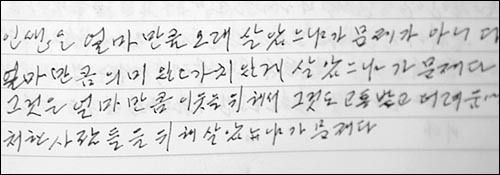 인생은 얼마만큼 오래 살았느냐가 문제가 아니다
얼마만큼 의미 있고 가치있게 살았느냐가 문제다
그것은 얼마만큼 이웃을 위해서 그것도 고통받고 어려움에
처한 사람들을 위해 살았느냐가 문제다